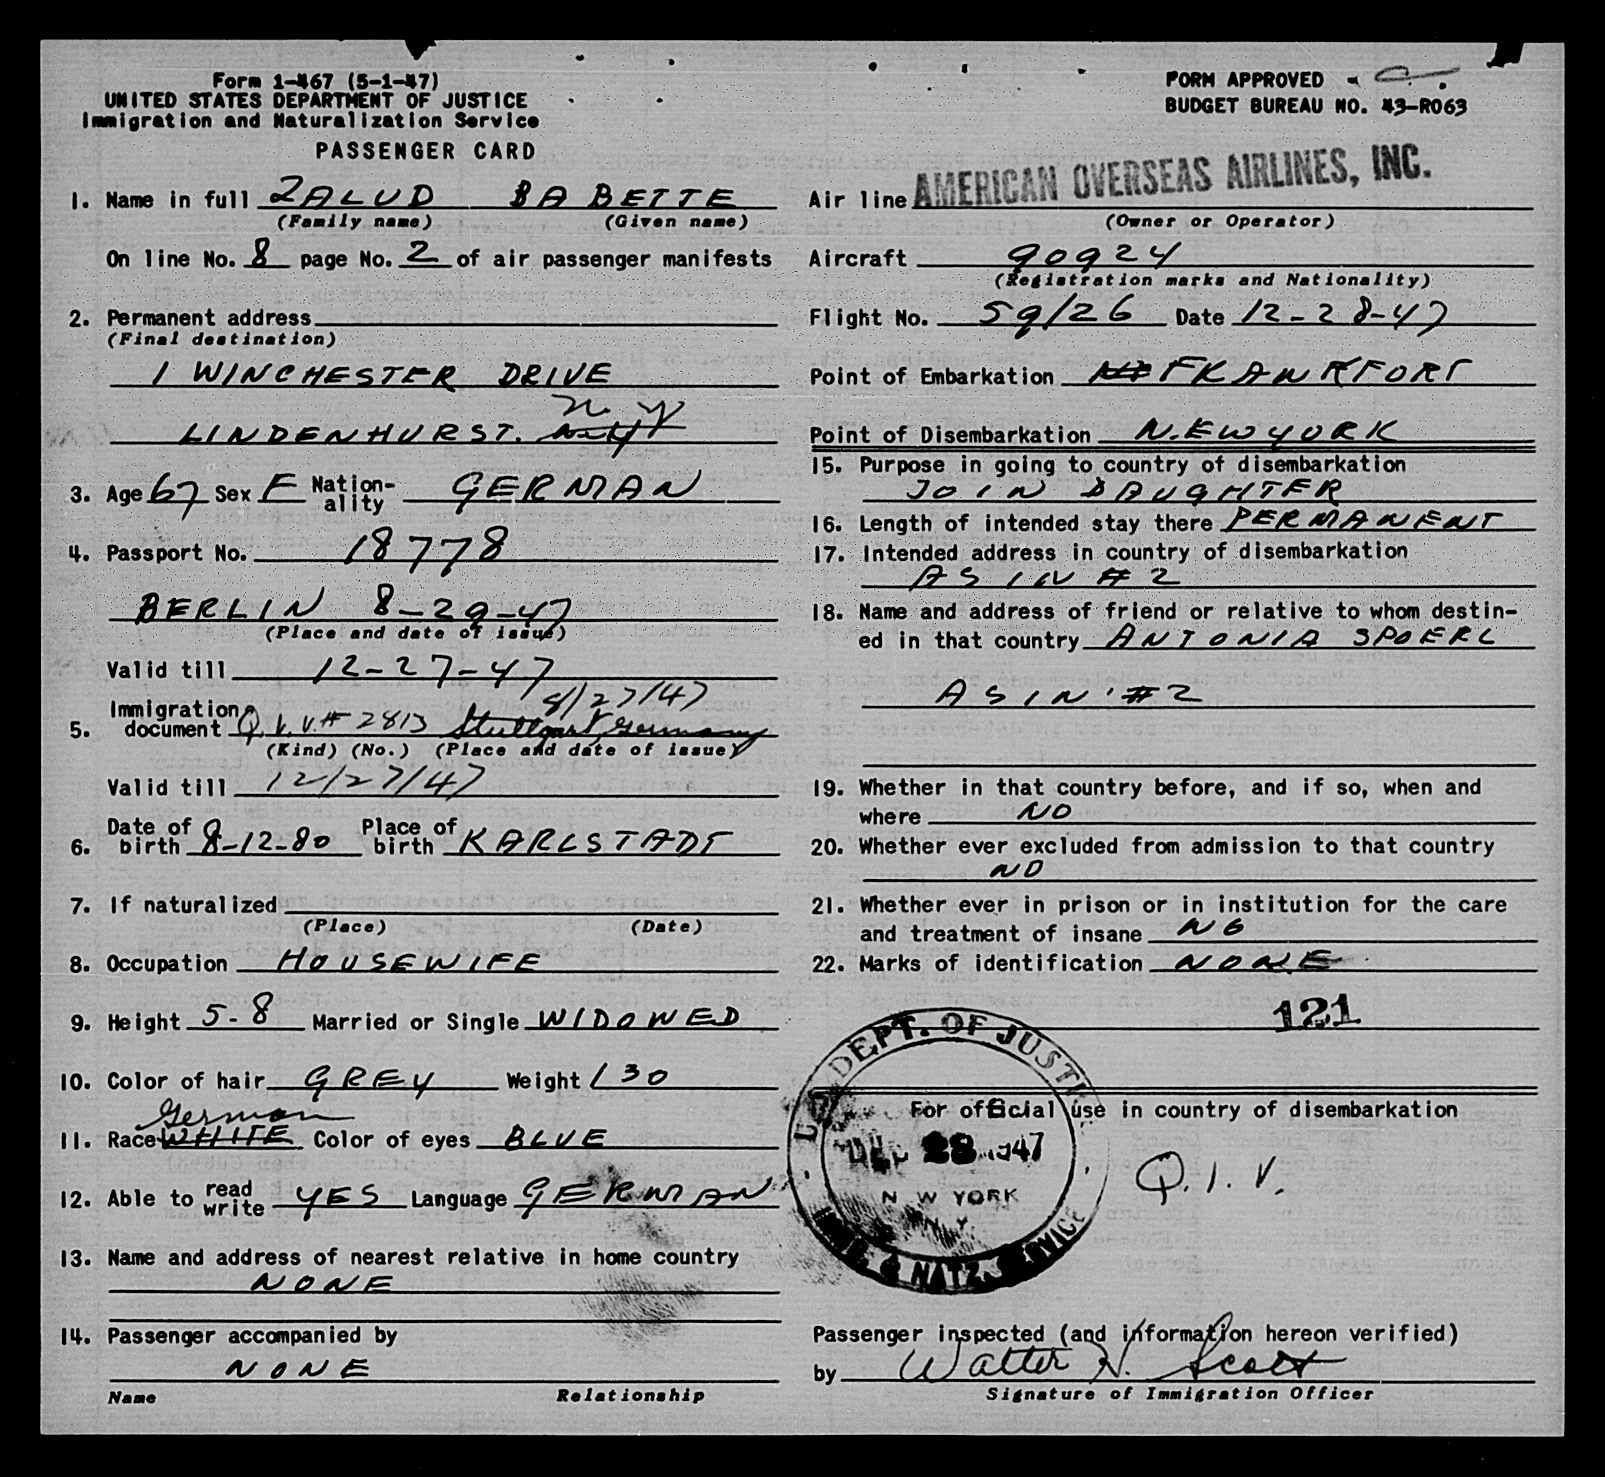 Form I-467 (5-1-47)
UNITED STATES DEPARTMENT OF JUSTICE
Immigration and Naturalization Service
PASSENGER CARD
FORM APPROVED
BUDGET BUREAU NO. 43-R063
1. Name in full ZALUD BABETTE
(Family name) (Given name)
On line No. 8 page No. 2 of air passenger manifests
2. Permanent address
(Final destination)
1 WINCHESTER DRIVE
N.Y
LINDENHURST. N.Y
3. Age 67 Sex F Nation-ality GERMAN
4. Passport No. 18778
BERLIN 8-29-47
(Place and date of issue)
Valid till 12-27-47
8/27/47
5. Immigration document Q.I.V.# 2813 Stuttgart, Germany
(Kind) (No.) (Place and date of issue)
Valid till 12/27/47
6. Date of birth 8-12-80 Place of birth KARLSTADT
7. If naturalized
(Place) (Date)
8. Occupation HOUSEWIFE
9. Height 5-8 Married or Single WIDOWED
10. Color of hair GREY Weight 130
German
11. Race WHITE Color of eyes BLUE
12. Able to read write YES Language GERMAN
13. Name and address of nearest relative in home country
NONE
14. Passenger accompanied by
NONE
Name Relationship
Air line AMERICAN OVERSEAS AIRLINES, INC.
(Owner or Operator)
Aircraft 90924
(Registration marks and Nationality)
Flight No. 59/26 Date 12-28-47
Point of Embarkation FRANKFORT
Point of Disembarkation N.EWYORK
15. Purpose in going to country of disembarkation
JOIN DAUGHTER
16. Length of intended stay there PERMANENT
17. Intended address in country of disembarkation
AS IN #2
18. Name and address of friend or relative to whom destin-
ed in that country ANTONIA SPOERL
AS IN #2
19. Whether in that country before, and if so, when and
where NO
20. Whether ever excluded from admission to that country
NO
21. Whether ever in prison or in institution for the care
and treatment of insane NO
22. Marks of identification NONE
121
For official use in country of disembarkation
U.S. DEPT. OF JUSTICE
DEC 28 1947
NEW YORK
N Y
IMM. & NATZ. SERVICE
Q.I.V.
Passenger inspected (and information hereon verified)
by Walter H. Scott
Signature of Immigration Officer